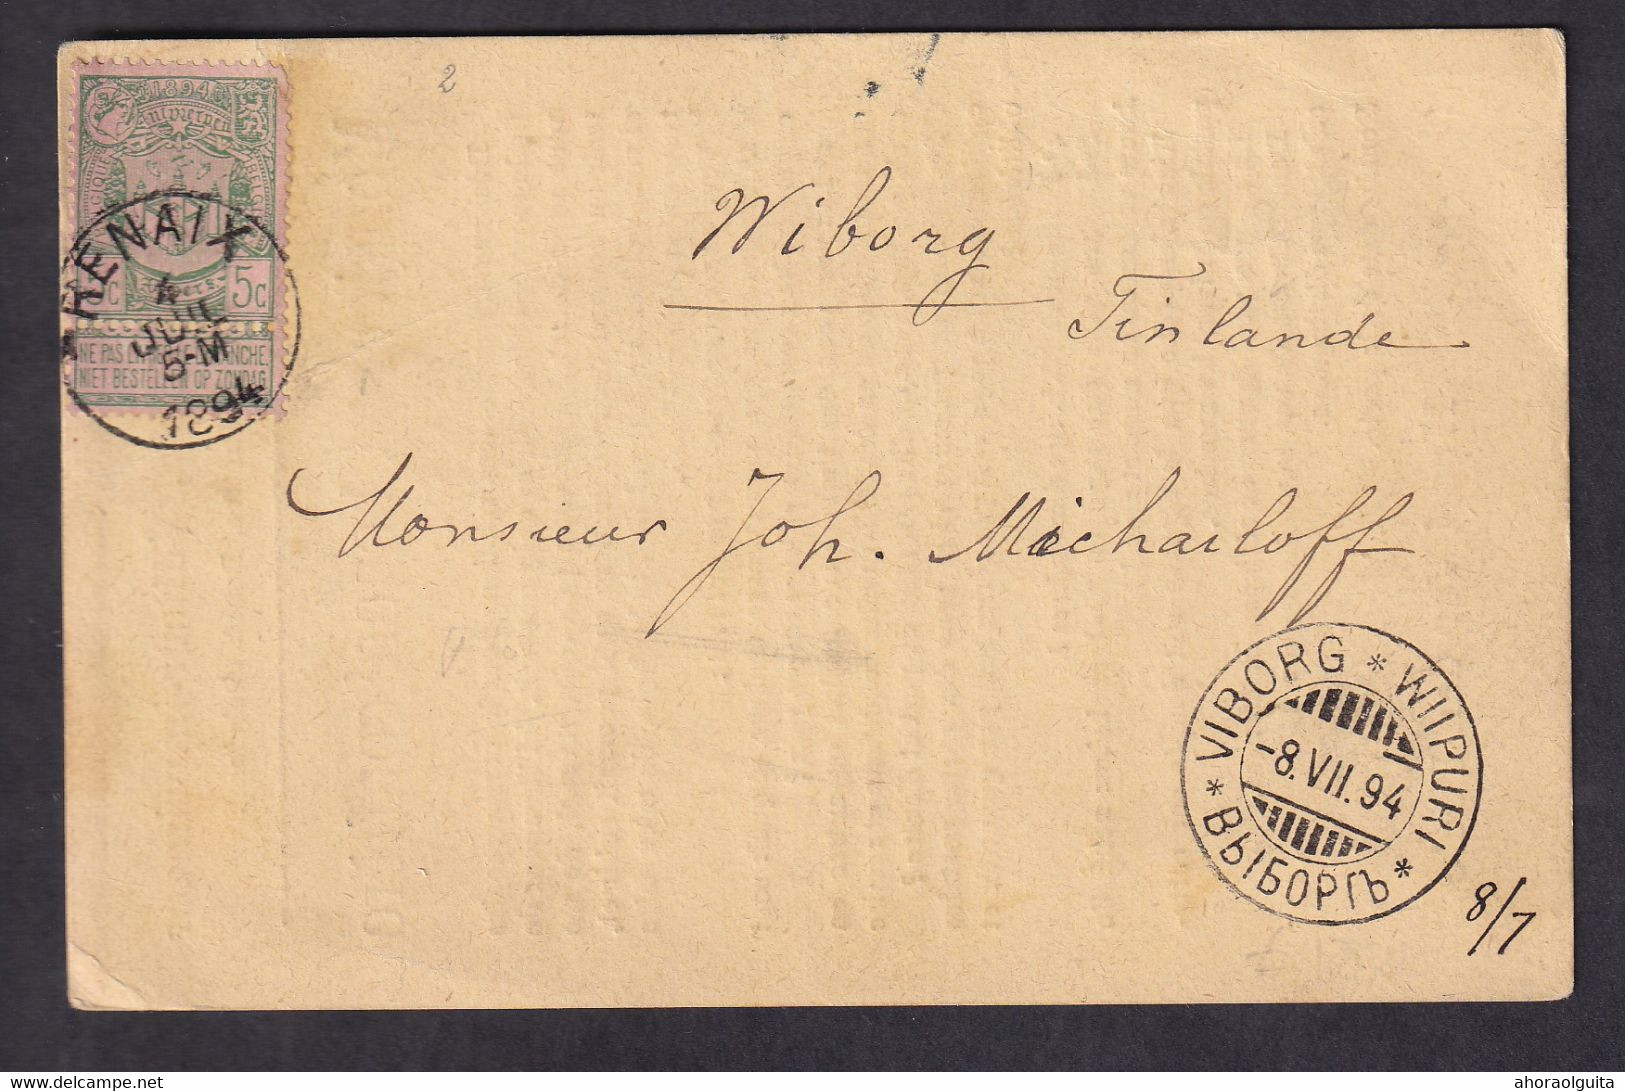 2
1894
Antwerpen
BELGIQUE
Anvers
5C 5C
NE PAS LIVRER LE DIMANCHE
NIET BESTELLEN OP ZONDAG
RENAIX
4
JUIL
5-M
1894
Wiborg
Finlande
Monsieur Joh. Micharloff
VIBORG * WIIPURI * ВЫБОРГЪ *
-8.VII.94
8/7
delcampe.net
ahoraolguita